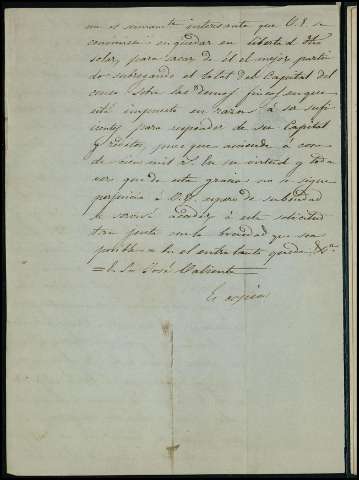 me es sumamente interesante que V.S. se
convenza en quedar en libertad dho
solar, para sacar de él el mejor parti
do subrogando el total del Capital del
censo sobre las demas fincas en que
está impuesto en razon á ser sufi
cientes para responder de su Capital
y réditos, pues que asciende á
cien mil En su virtud y toda
vez que de esta gracia no se sigue
perjuicio á V.S. espero de su bondad
se servirá acceder á esta solicitud
tan justa con la brevedad que sea
posible el entretanto queda &ª
José Valiente
Es copia